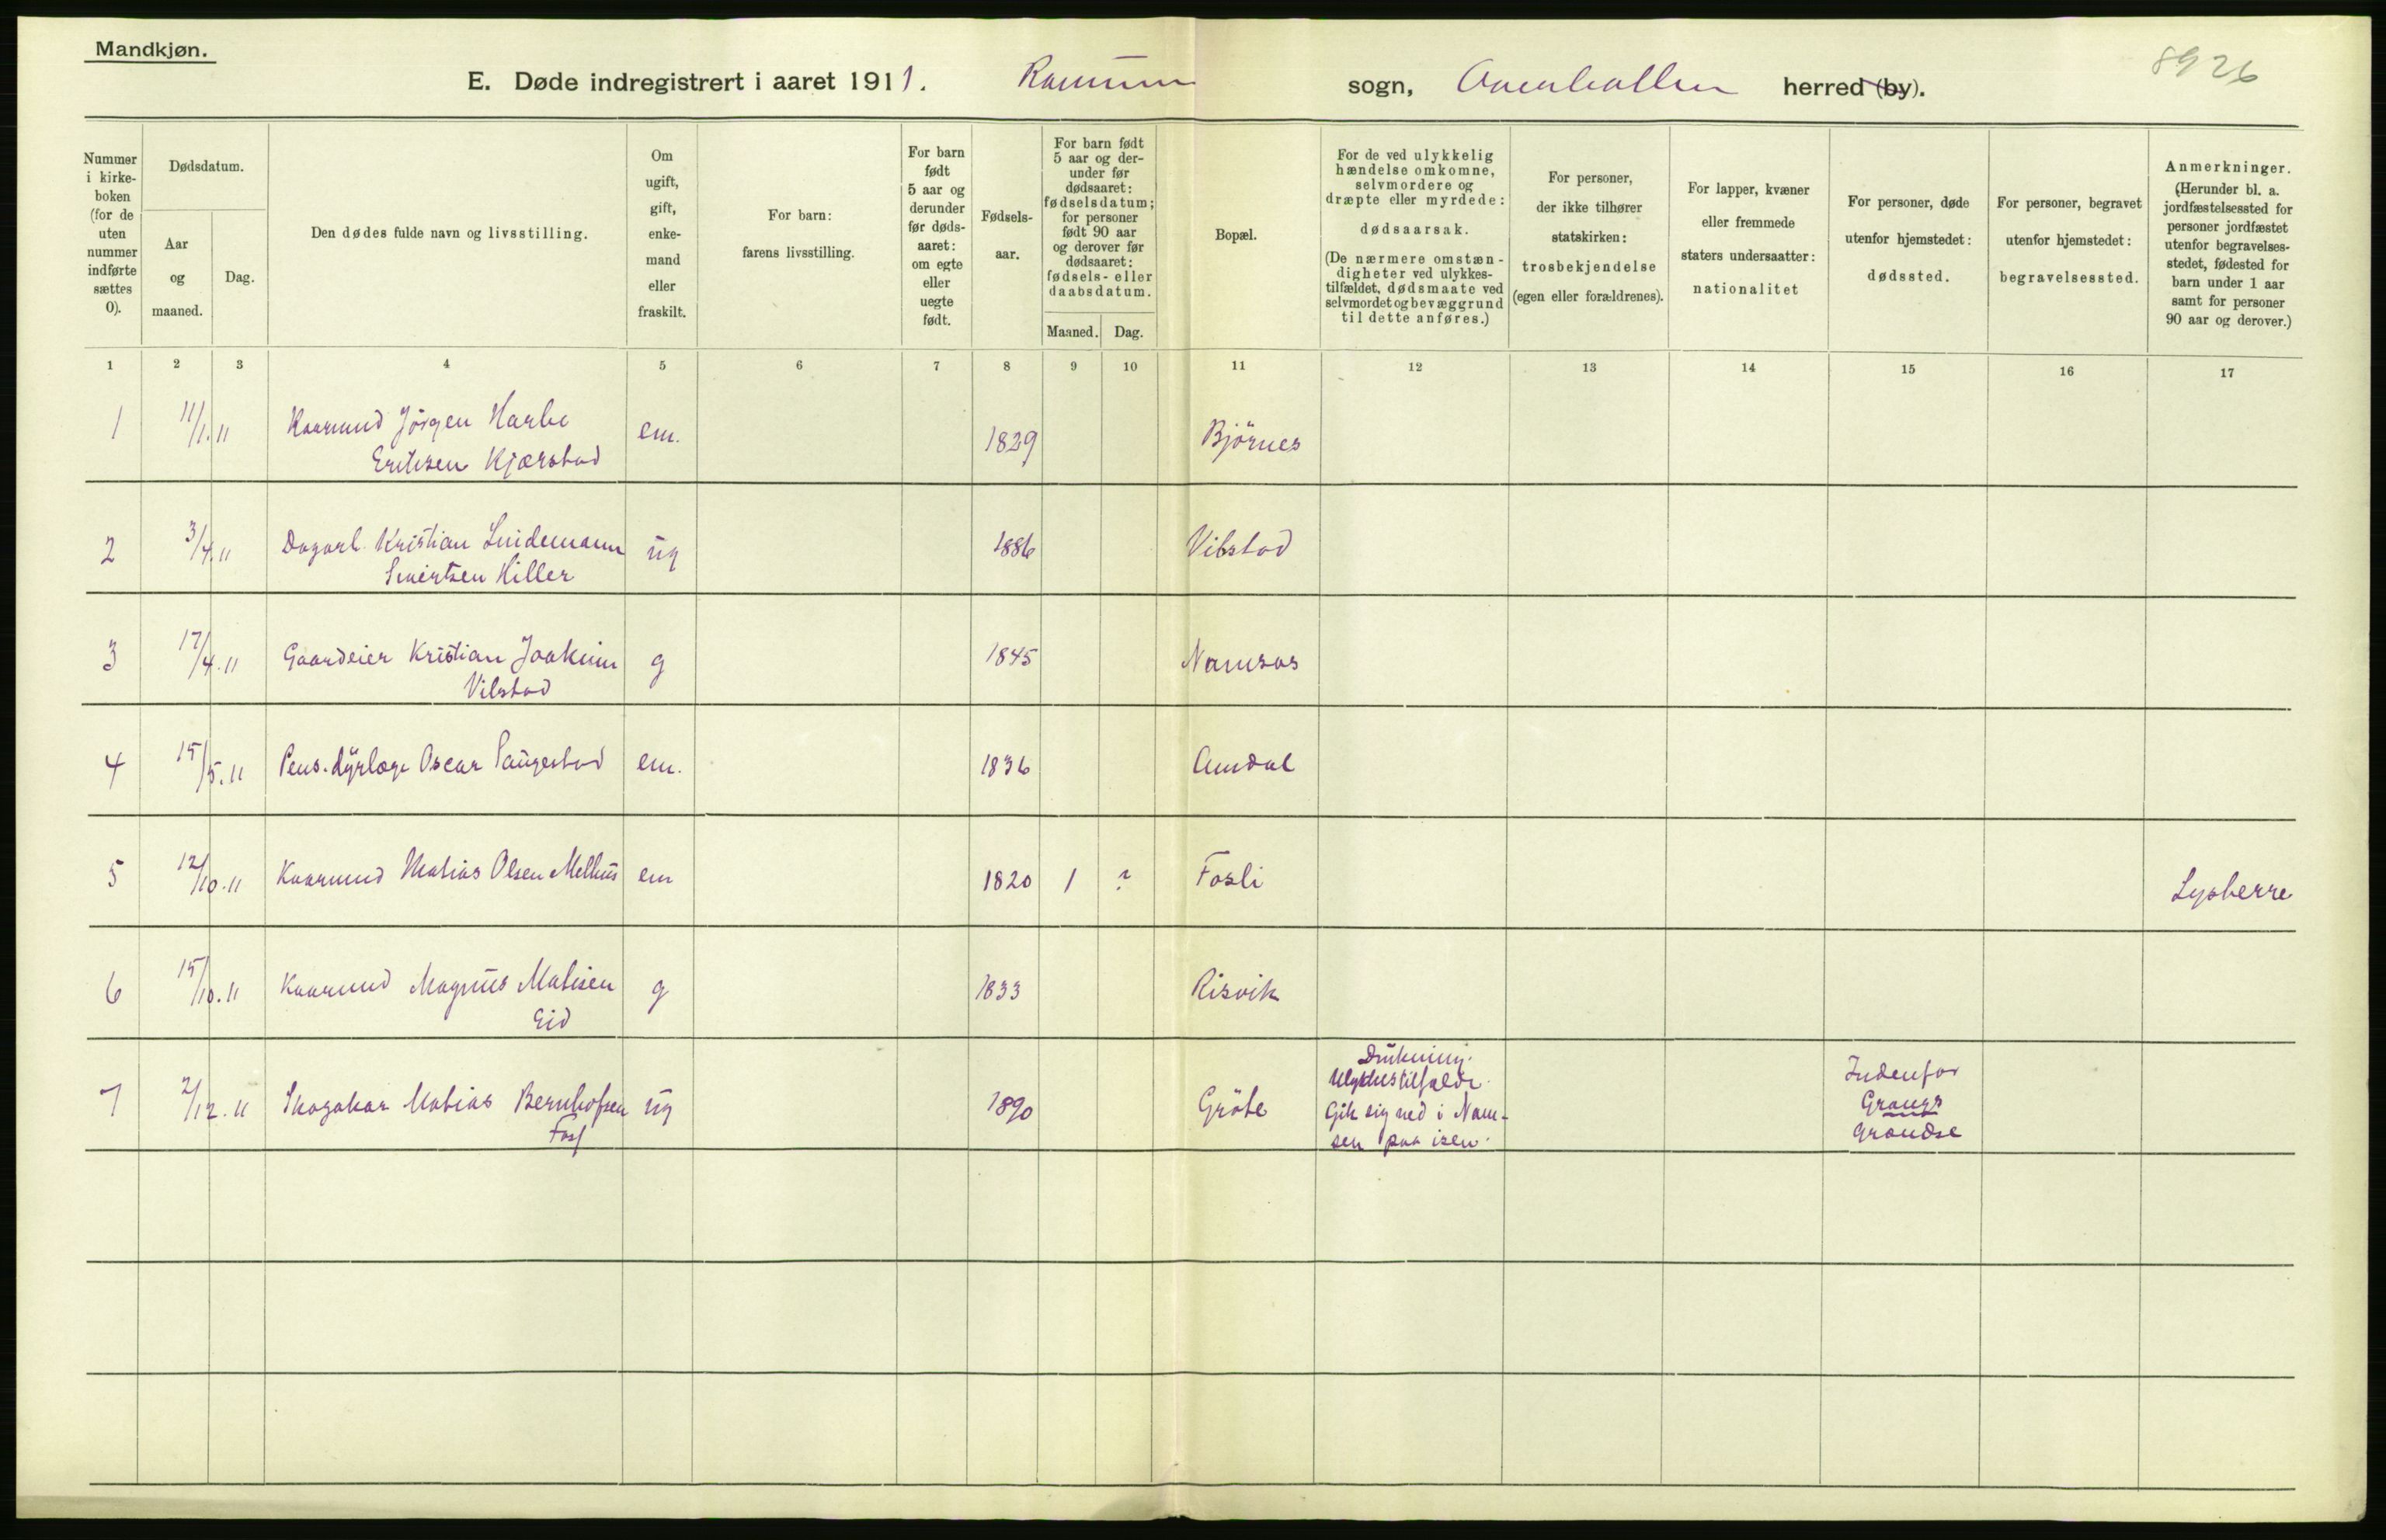 Mandkjøn.
E. Døde indregistrert i aaret 1911. Ranum sogn, Overhallen herred (by).
8926
Nummer i kirkeboken (for de uten nummer indførte sættes 0).
Dødsdatum.
Aar og maaned.
Dag.
Den dødes fulde navn og livsstilling.
Om ugift, gift, enkemand eller fraskilt.
For barn: farens livsstilling.
For barn født 5 aar og derunder før dødsaaret: om egte eller uegte født.
Fødselsaar.
For barn født 5 aar og derunder før dødsaaret: fødselsdatum; for personer født 90 aar og derover før dødsaaret: fødsels- eller daabsdatum.
Maaned. Dag.
Bopæl.
For de ved ulykkelig hændelse omkomne, selvmordere og dræpte eller myrdede: dødsaarsak. (De nærmere omstændigheter ved ulykkestilfældet, dødsmaate ved selvmordet og bevæggrund til dette anføres.)
For personer, der ikke tilhører statskirken: trosbekjendelse (egen eller forældrenes).
For lapper, kvæner eller fremmede staters undersaatter: nationalitet
For personer, døde utenfor hjemstedet: dødssted.
For personer, begravet utenfor hjemstedet: begravelsessted.
Anmerkninger. (Herunder bl. a. jordfæstelsessted for personer jordfæstet utenfor begravelsesstedet, fødested for barn under 1 aar samt for personer 90 aar og derover.)
1 2 3 4 5 6 7 8 9 10 11 12 13 14 15 16 17
1 11/1.11 Kaarmand Jörgen Harbo em. 1829 Björnes
Eriksen Kjærstad
2 3/4.11 Dagarb. Kristian Lindemann ug 1886 Vibstad
Sivertsen Hiller
3 17/4.11 Gaardeier Kristian Joakim g 1845 Namsos
Vibstad
4 15/5.11 Pens. dyrlæge Oscar Saugestad em. 1836 Amdal
5 12/10.11 Kaarmand Matias Olsen Melhus em 1820 1 ? Fosli Lysberre
6 15/10.11 Kaarmand Magnus Matisen g 1833 Risvik
Eid
7 2/12.11 Skogakar Matias Bernhofsen ug 1890 Gröte
Fosf
Drukning.
Ulykkestilfælde.
Gik sig ned i Nam-
sen paa isen.
Indenfor
Grongs
Grændse